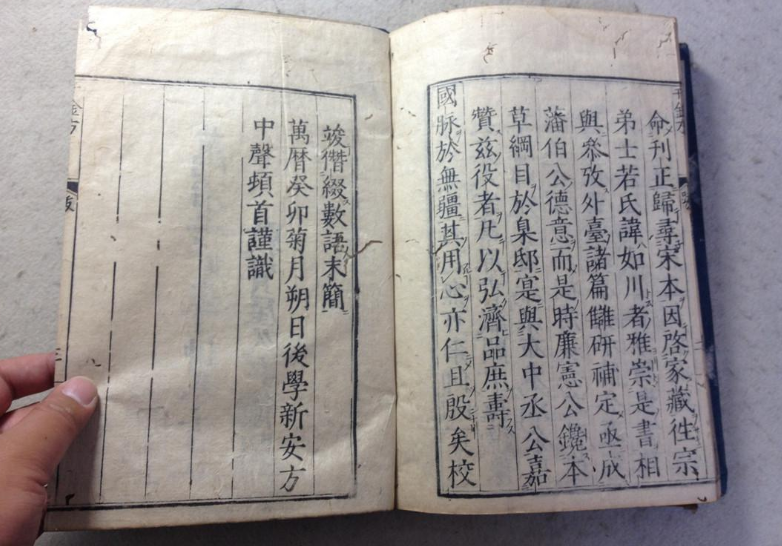 命刊正歸尋宋本因啓家藏徃宗
弟士若氏諱如川者雅崇是書相
與叅攷外臺諸篇讎研補定亟成
藩伯公德意而是時廉憲公鑱本
草綱目於臬邸寔與大中丞公嘉
贊茲役者凡以弘濟品庶壽
國脉於無疆其用心亦仁且殷矣校
竣僣綴數語末簡
萬曆癸卯菊月朔日後學新安方
中聲頓首謹識
千金方